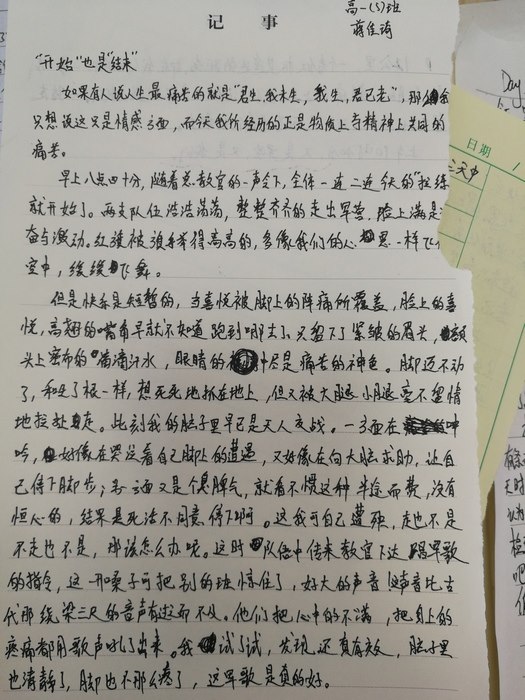 记 事
高一(5)班
蒋佳琦
"开始"也是"结束"
如果有人说人生最痛苦的就是"君生我未生,我生,君已老",那
只想说这只是情感方面,而今天我所经历的正是物质上与精神上共同的
痛苦。
早上八点四十分,随着总教官的一声令下,全体一连二连今天的"拉练
就开始了。两支队伍浩浩荡荡,整整齐齐的走出军营,脸上满是
奋与激动。红旗被 举得高高的,多像我们的心 思一样飞
空中,缓缓飞舞。
但是快乐是短暂的,当喜悦被脚上的阵痛所覆盖,脸上的喜
悦,高翘的嘴角早就不知道跑到哪去了,只留下了紧皱的眉头,额
头上密布的 滴汗水,眼睛的 尽是痛苦的神色。脚迈不动
了,和生了根一样,想死死地抓在地上,但又被大腿小腿毫不留情
地拉扯走。此刻我的脑子里早已是天人交战。一方面在 呻
吟,好像在哭泣着自己脚上的遭遇,又好像在向大脑求助,让自
己停下脚步;另一方面又是个臭脾气,就看不惯这种半途而废,没有
恒心的,结果是死活不同意停下啊。这我可自己遭殃,走也不是
不走也不是,那该怎么办呢。这时队伍中传来教官下达 唱军歌
的指令,这一开嗓子可把别的班惊住了,好大的声音!这声音比古
代那绕梁三尺的音声有过而不及。他们把心中的不满,把身上的
疼痛都用歌声吼了出来。我试了试,发现还真有效,脑子里
也清静了,脚也不那么疼了,这军歌是真的好。
日期
三天中
Day